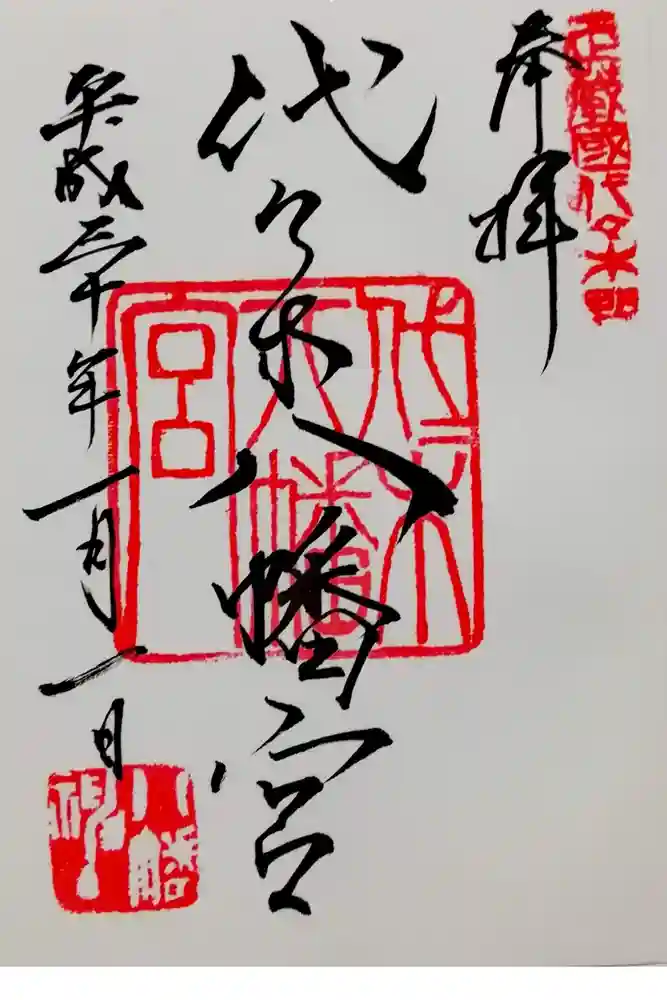 奉拝
武蔵國代々木野
代々木八幡宮
代々木八幡宮
平成三十年一月一日